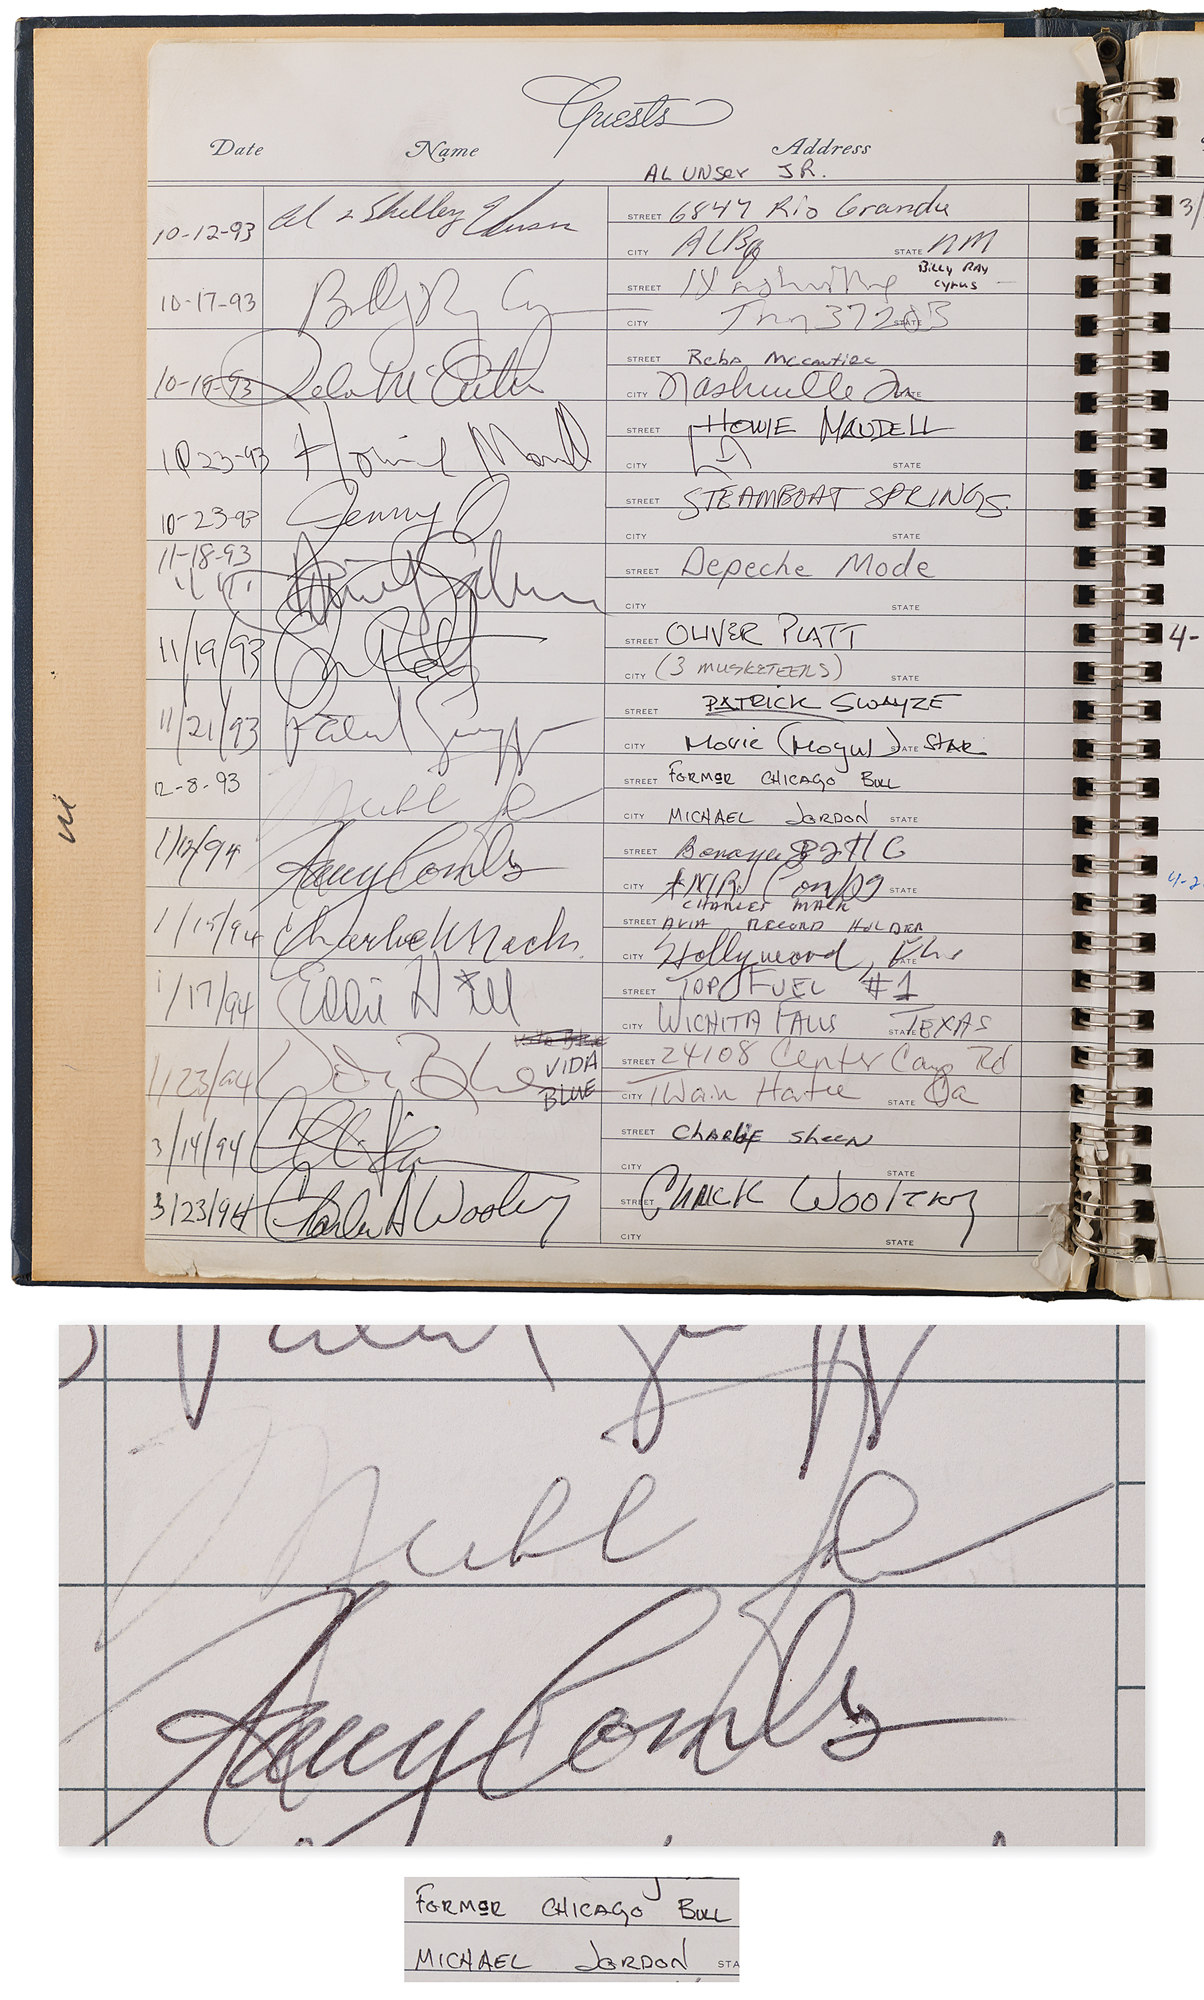 Guests
Date Name Address
AL UNSER JR.
10-12-93 Al & Shelley Unser STREET 6847 Rio Grande
CITY ALBq STATE NM
10-17-93 Billy Ray Cy STREET Nashville Billy Ray Cyrus
CITY Tnn 37203 STATE
STREET Reba McEntire
10-19-93 Reba McEntire CITY Nashville Tn STATE
STREET HOWIE MANDELL
10 23-93 Howie Mand CITY STATE
10-23-93 Jenny O STREET STEAMBOAT SPRINGS.
CITY STATE
11-18-93 STREET Depeche Mode
CITY STATE
11/19/93 STREET OLIVER PLATT
CITY (3 MUSKETEERS) STATE
11/21/93 Patrick Swayze STREET PATRICK SWAYZE
CITY MOVIE (MOGUL) STATE STAR
12-8-93 STREET FORMER CHICAGO BULL
CITY MICHAEL JORDON STATE
1/12/94 STREET
CITY STATE
CHARLES MACK
1/15/94 Charlie Mack STREET AVIA RECORD HOLDER
CITY Hollywood, STATE
1/17/94 Eddie Hill STREET TOP FUEL #1
CITY WICHITA FALLS STATE TEXAS
1/23/94 VIDA BLUE STREET 24108 Center Camp Rd
CITY Twain Harte STATE Ca
3/14/94 STREET CHARLIE SHEEN
CITY STATE
3/23/94 Charles A Woolery STREET CHUCK WOOLERY
CITY STATE
3/
4-
4-2
FORMER CHICAGO BULL
MICHAEL JORDON STA